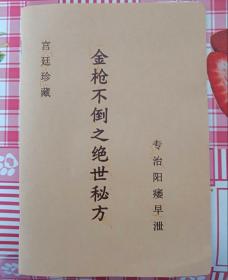 宫廷珍藏
金枪不倒之绝世秘方
专治阳痿早泄